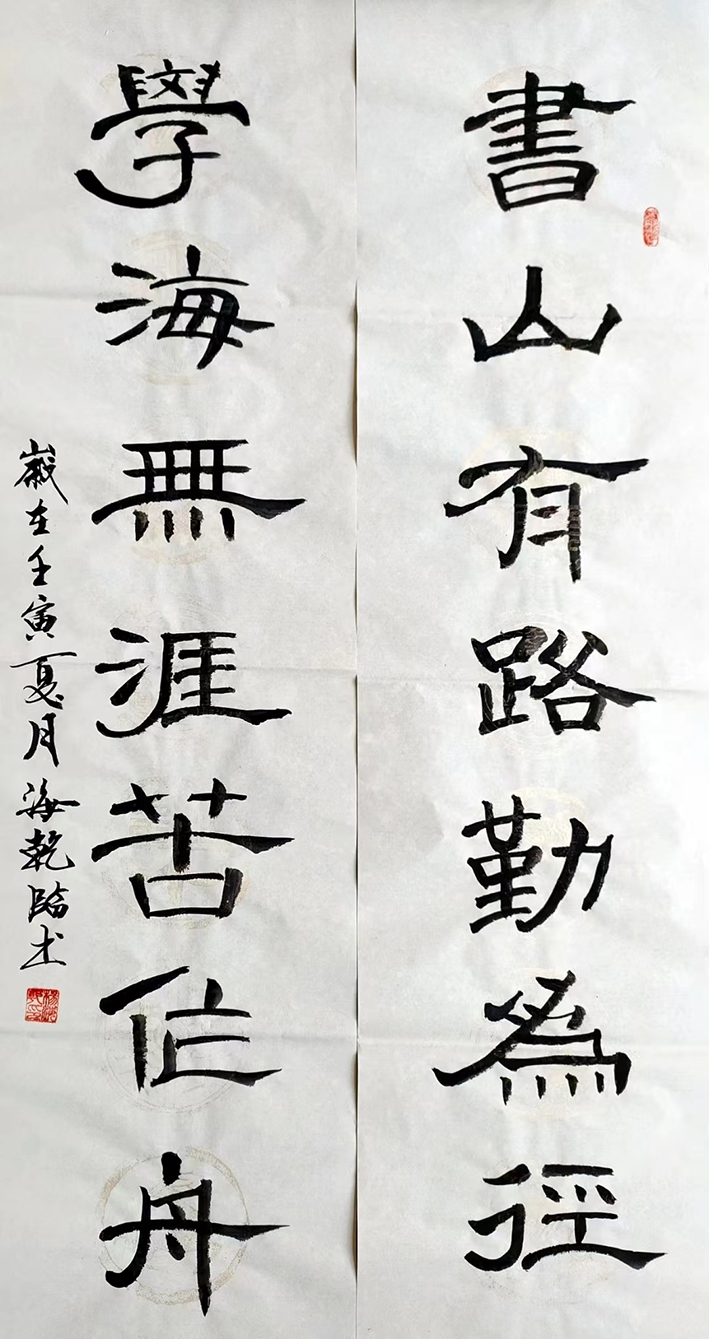 書山有路勤為徑
學海無涯苦作舟
嵗在壬寅夏月海乾臨書